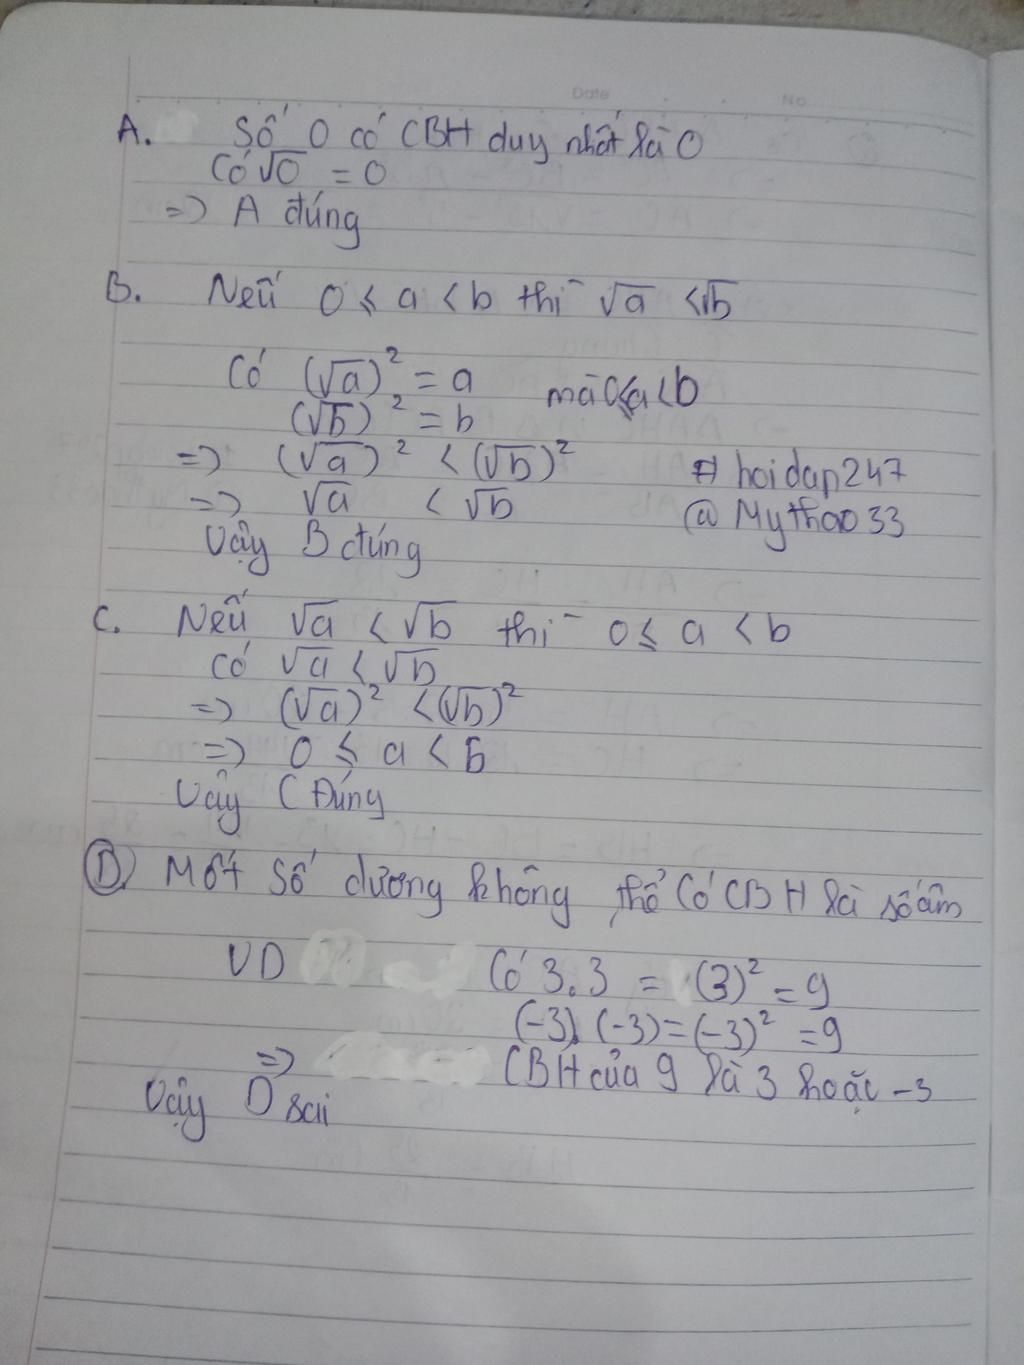 Date No
A. Số 0 có CBH duy nhất là 0
Có √0 = 0
=> A đúng
B. Nếu 0 ≤ a < b thì √a < √b
Có (√a)² = a
mà 0 ≤ a < b
(√b)² = b
=> (√a)² < (√b)²
# hoidap247
=> √a < √b
@ Mythao33
Vậy B đúng
C. Nếu √a < √b thì 0 ≤ a < b
Có √a < √b
=> (√a)² < (√b)²
=> 0 ≤ a < b
Vậy C Đúng
D. Một số dương không thể có CBH là số âm
VD Có 3.3 = (3)² = 9
(-3).(-3) = (-3)² = 9
=> CBH của 9 là 3 hoặc -3
Vậy D sai